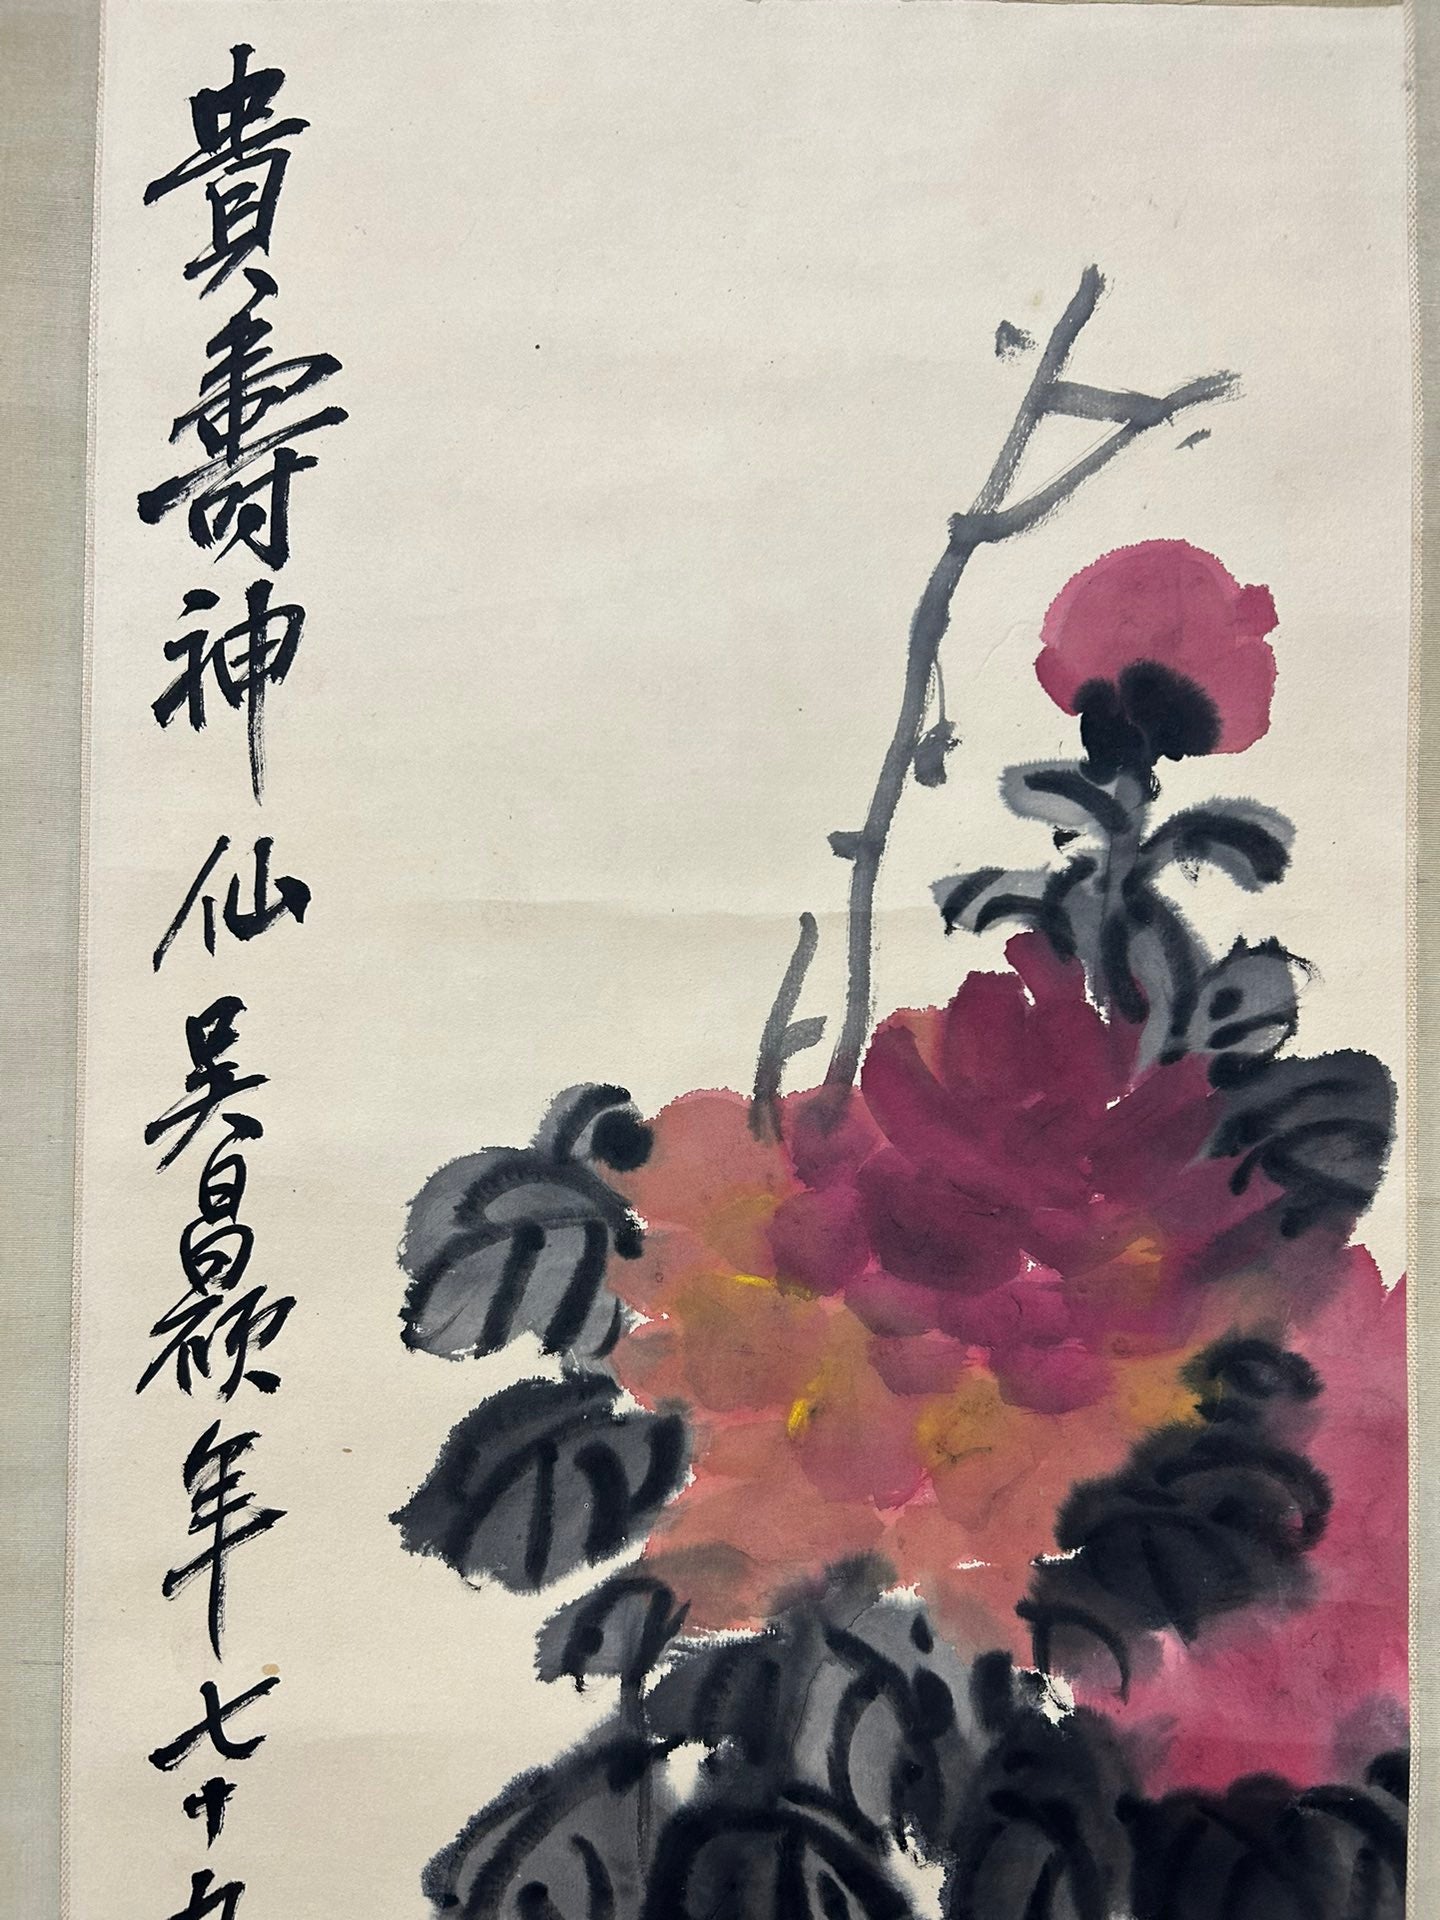 貴壽神仙吳昌碩年七十九